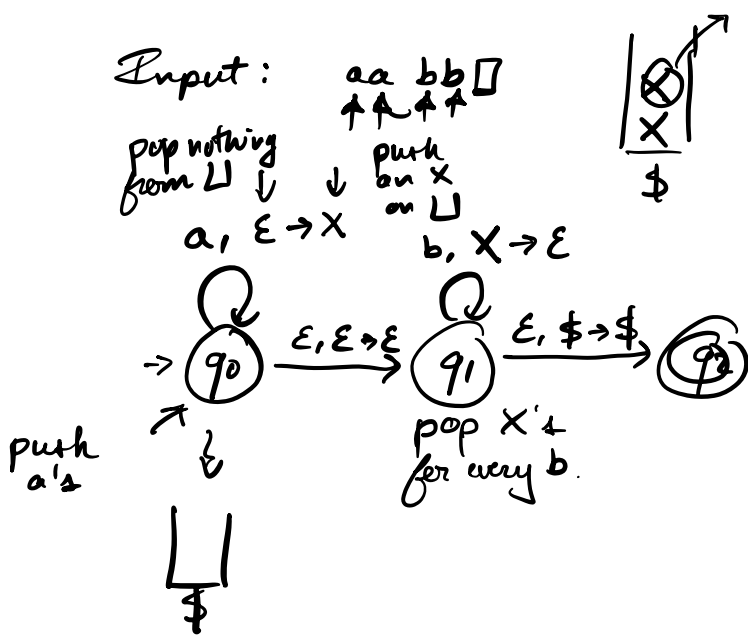 Input: aa bb
pop nothing
from ⊔
push
an X
on ⊔
$
a, ε → X
b, X → ε
ε, ε → ε
ε, $ → $
q0
q1
q2
push
a's
pop X's
for every b.
X
X
$